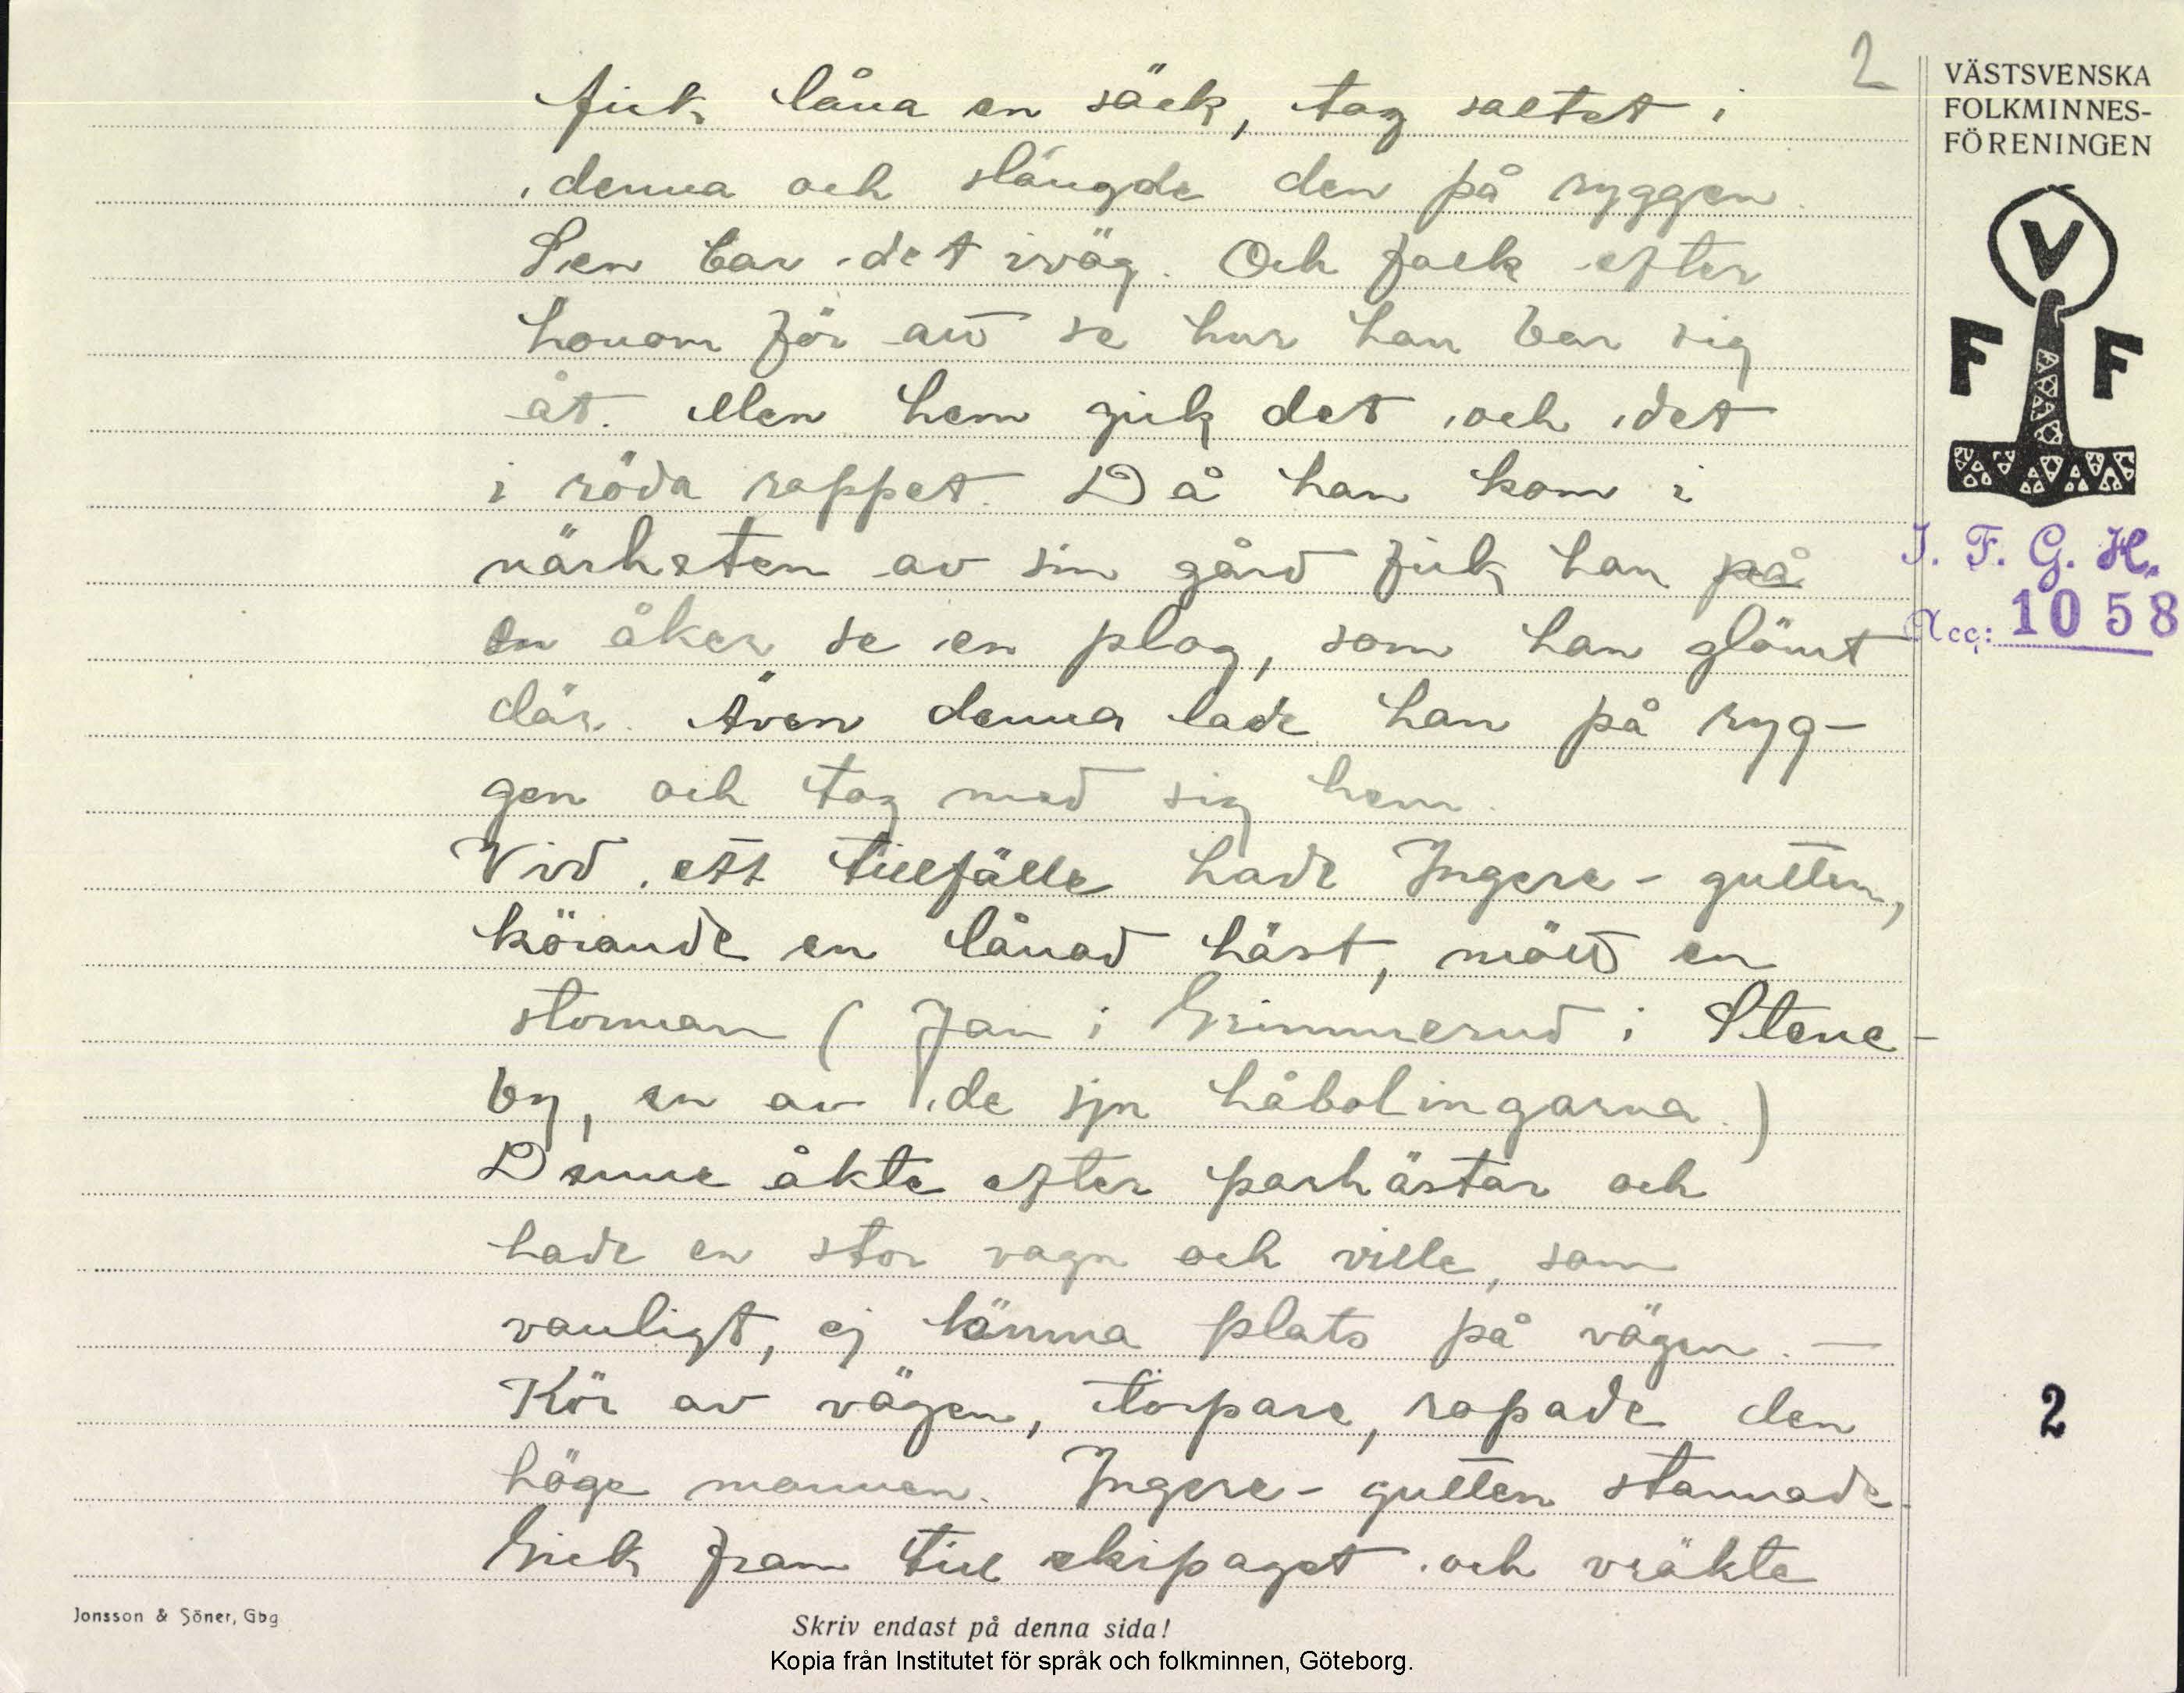 2
VÄSTSVENSKA
FOLKMINNES-
FÖRENINGEN
V
F F
I. F. G. H.
Acc: 1058
fick låna en säck, tog saltet i
denna och slängde den på ryggen.
Sen bar det iväg. Och folk efter
honom för att se hur han bar sig
åt. Men hem gick det och det
i röda rappet. Då han kom i
närheten av sin gård fick han på
en åker se en plog, som han glömt
där. Även denna lade han på ryg-
gen och tog med sig hem.
Vid ett tillfälle hade Ingere-gutten,
körande en lånad häst, mött en
storman (Jan i Grimmerud i Stene-
by, en av de sju håbolingarna.)
Denne åkte efter parhästar och
hade en stor vagn och ville, som
vanligt, ej lämna plats på vägen. —
Kör av vägen, torpare, ropade den
höge mannen. Ingere-gutten stannade.
Gick fram till ekipaget och vräkte
2
Jonsson & Söner, Gbg
Skriv endast på denna sida!
Kopia från Institutet för språk och folkminnen, Göteborg.